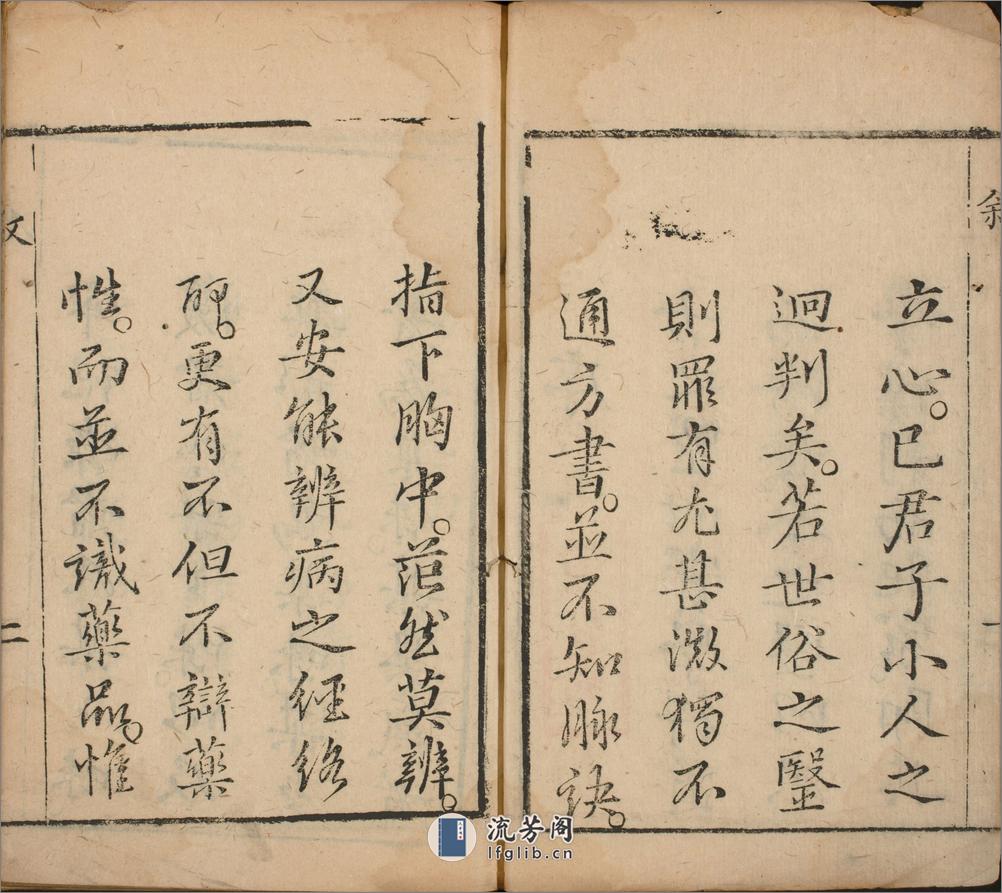 立心。已君子小人之
迥判矣。若世俗之毉
則罪有尤甚微獨不
通方書。並不知脉訣。
指下胸中。茫然莫辨。
又安能辨病之經絡
耶。更有不但不辯藥
性。而並不識藥品。惟
二
流芳阁
lfglib.cn